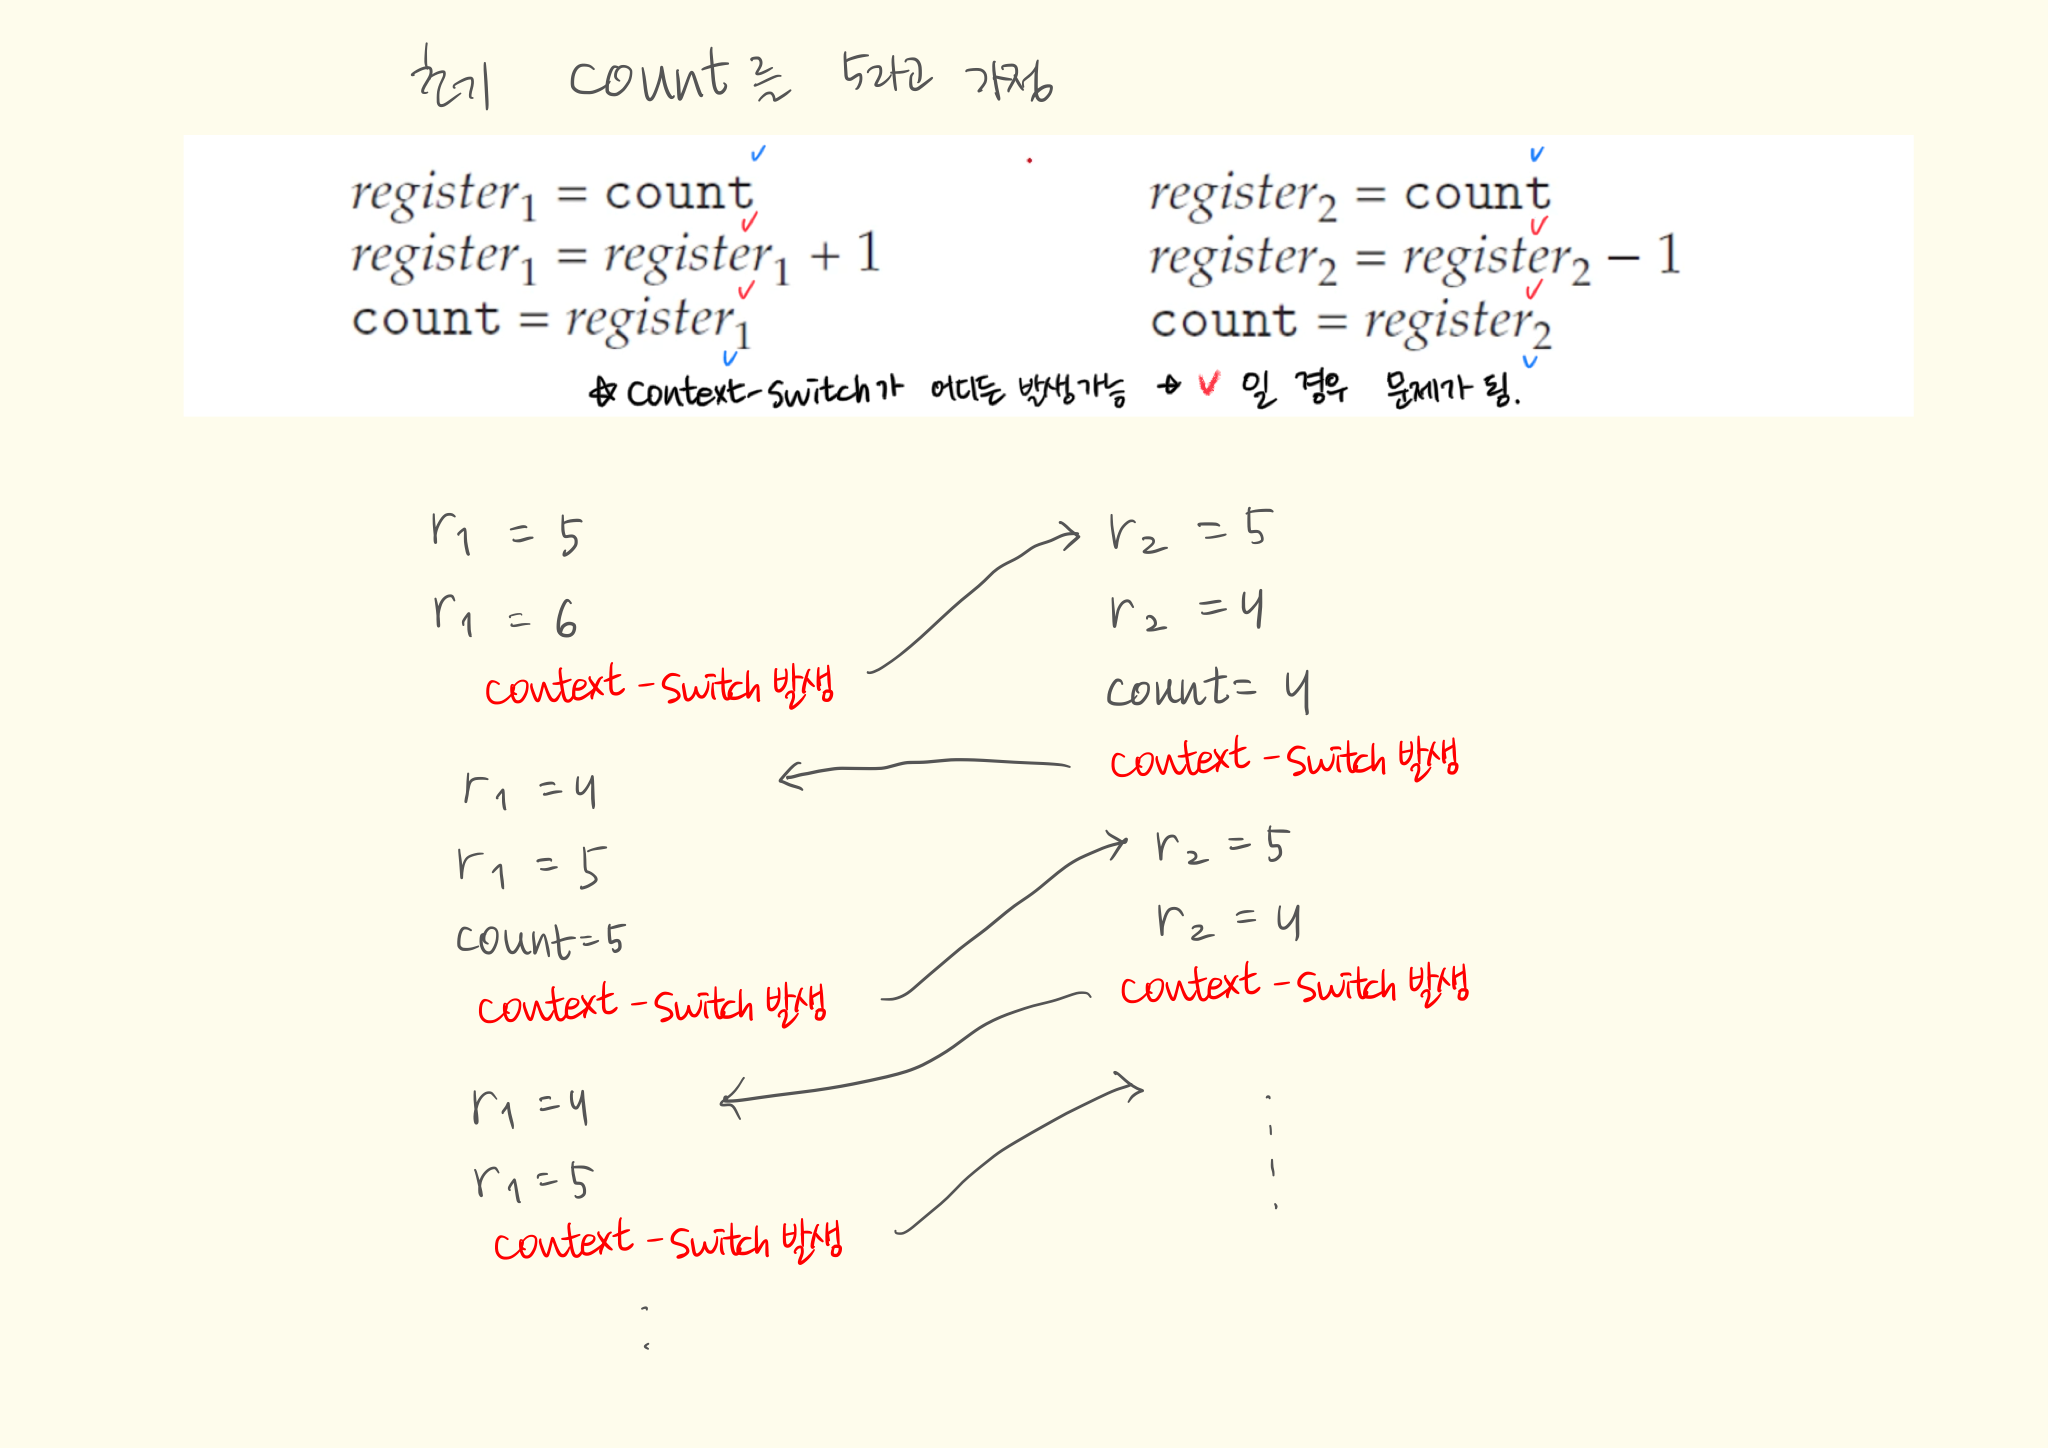 초기 count를 5라고 가정
register₁ = count
register₁ = register₁ + 1
count = register₁
register₂ = count
register₂ = register₂ − 1
count = register₂
☆ Context-Switch가 어디든 발생가능 → ✓ 일 경우 문제가 됨.
r₁ = 5
r₁ = 6
context - switch 발생
r₂ = 5
r₂ = 4
count = 4
context - switch 발생
r₁ = 4
r₁ = 5
count = 5
context - switch 발생
r₂ = 5
r₂ = 4
context - switch 발생
r₁ = 4
r₁ = 5
context - switch 발생